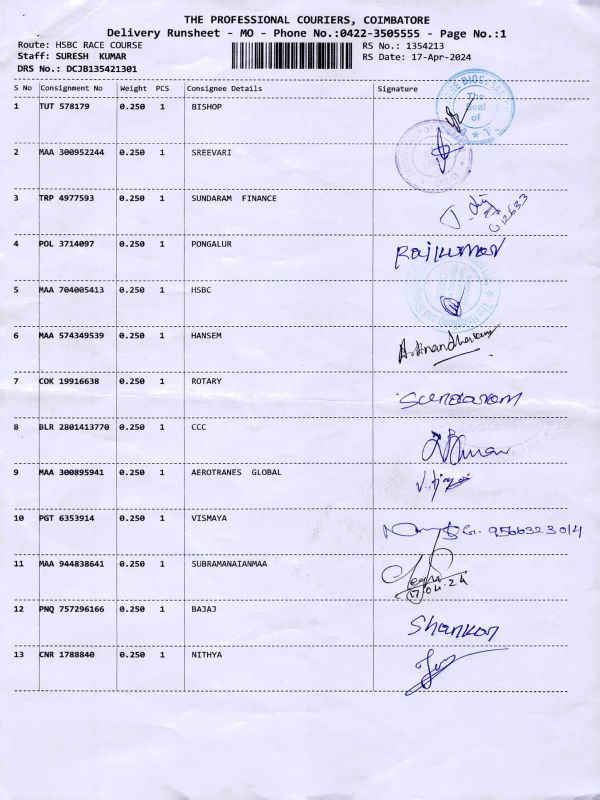 THE PROFESSIONAL COURIERS, COIMBATORE
Delivery Runsheet - MO - Phone No.:0422-3505555 - Page No.:1
Route: HSBC RACE COURSE
RS No.: 1354213
Staff: SURESH KUMAR
RS Date: 17-Apr-2024
DRS No.: DCJB135421301
S No Consignment No Weight PCS Consignee Details Signature
1 TUT 578179 0.250 1 BISHOP
The Seal of
2 MAA 300952244 0.250 1 SREEVARI
3 TRP 4977593 0.250 1 SUNDARAM FINANCE
4 POL 3714097 0.250 1 PONGALUR Rajkumar
5 MAA 704005413 0.250 1 HSBC
6 MAA 574349539 0.250 1 HANSEM
7 COK 19916638 0.250 1 ROTARY Sundaram
8 BLR 2801413770 0.250 1 CCC
9 MAA 300895941 0.250 1 AEROTRANES GLOBAL
10 PGT 6353914 0.250 1 VISMAYA
11 MAA 944838641 0.250 1 SUBRAMANAIANMAA
17.04.24
12 PNQ 757296166 0.250 1 BAJAJ Shankar
13 CNR 1788840 0.250 1 NITHYA